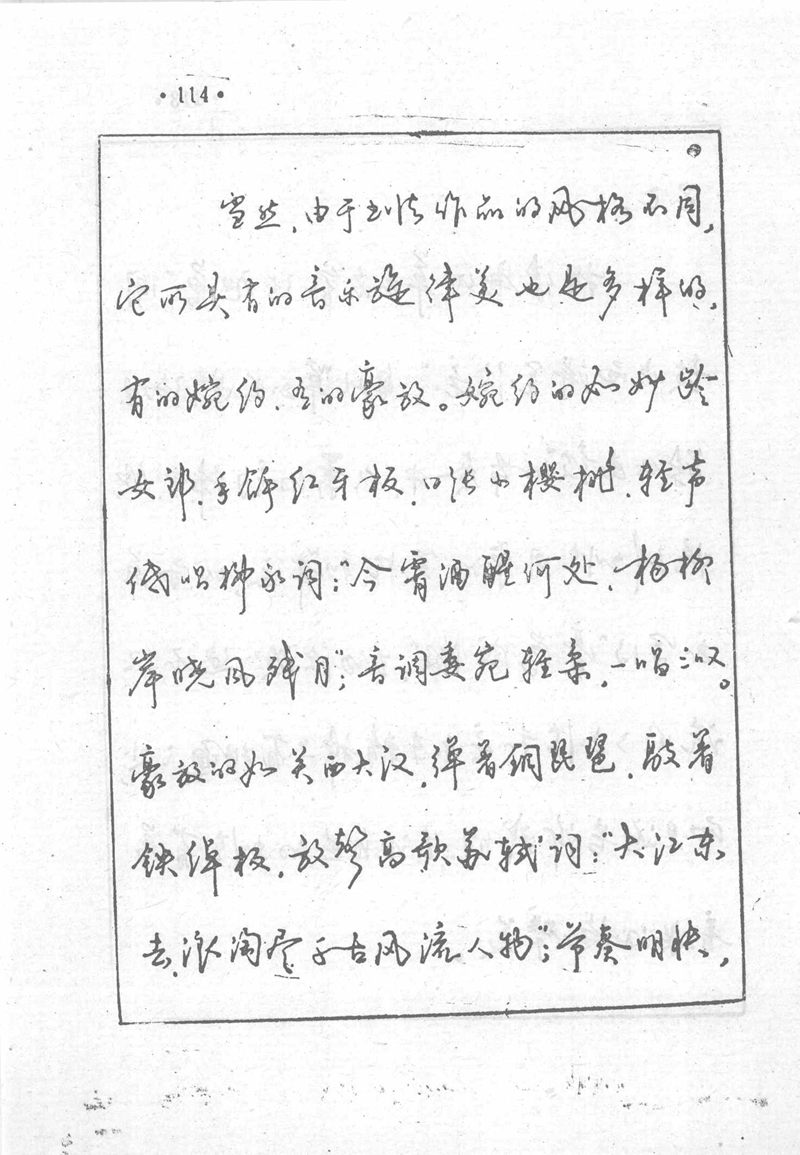 ·114·
当然,由于书法作品的风格不同,
它所具有的音乐旋律美也是多样的,
有的婉约,有的豪放。婉约的如妙龄
女郎,手 红牙板,口张小樱桃,轻声
低唱柳永词:“今宵酒醒何处,杨柳
岸晓风残月”;音调委宛轻柔,一唱三叹。
豪放的如关西大汉,弹着铜琵琶,敲着
铁绰板,放声高歌苏轼词:“大江东
去,浪淘尽千古风流人物”;节奏明快,